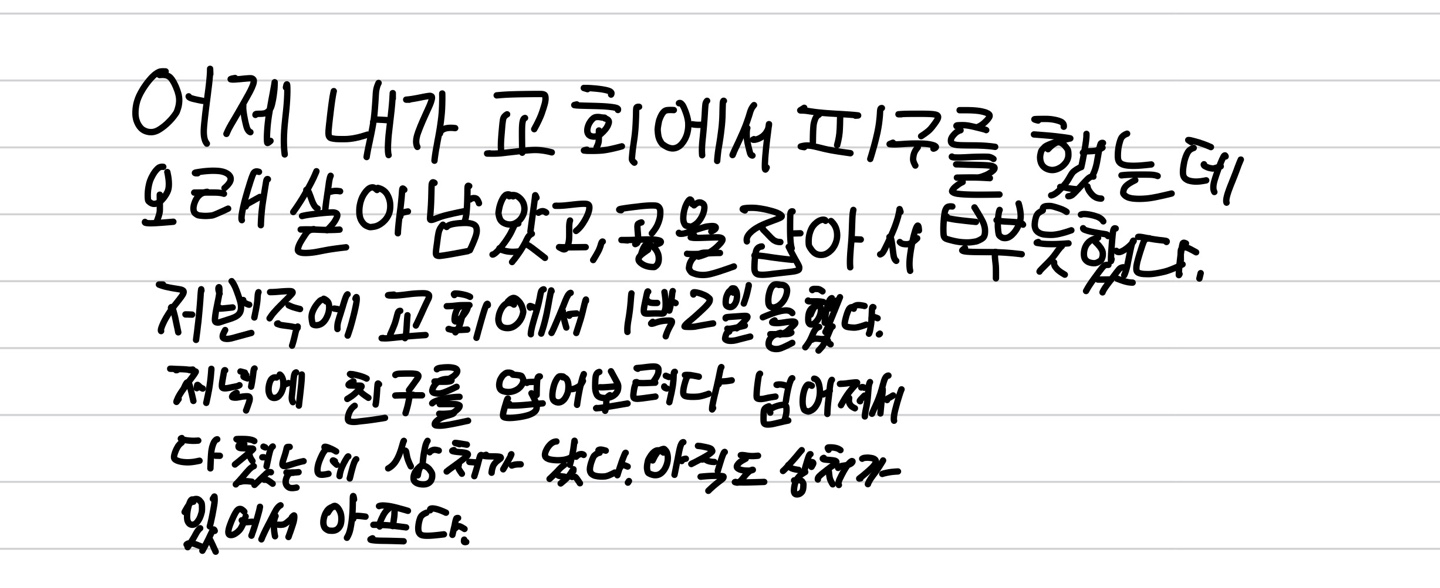 어제 내가 교회에서 피구를 했는데
오래 살아남았고, 공을 잡아서 뿌듯했다.
저번주에 교회에서 1박2일을했다.
저녁에 친구를 업어보려다 넘어져서
다쳤는데 상처가 났다. 아직도 상처가
있어서 아프다.